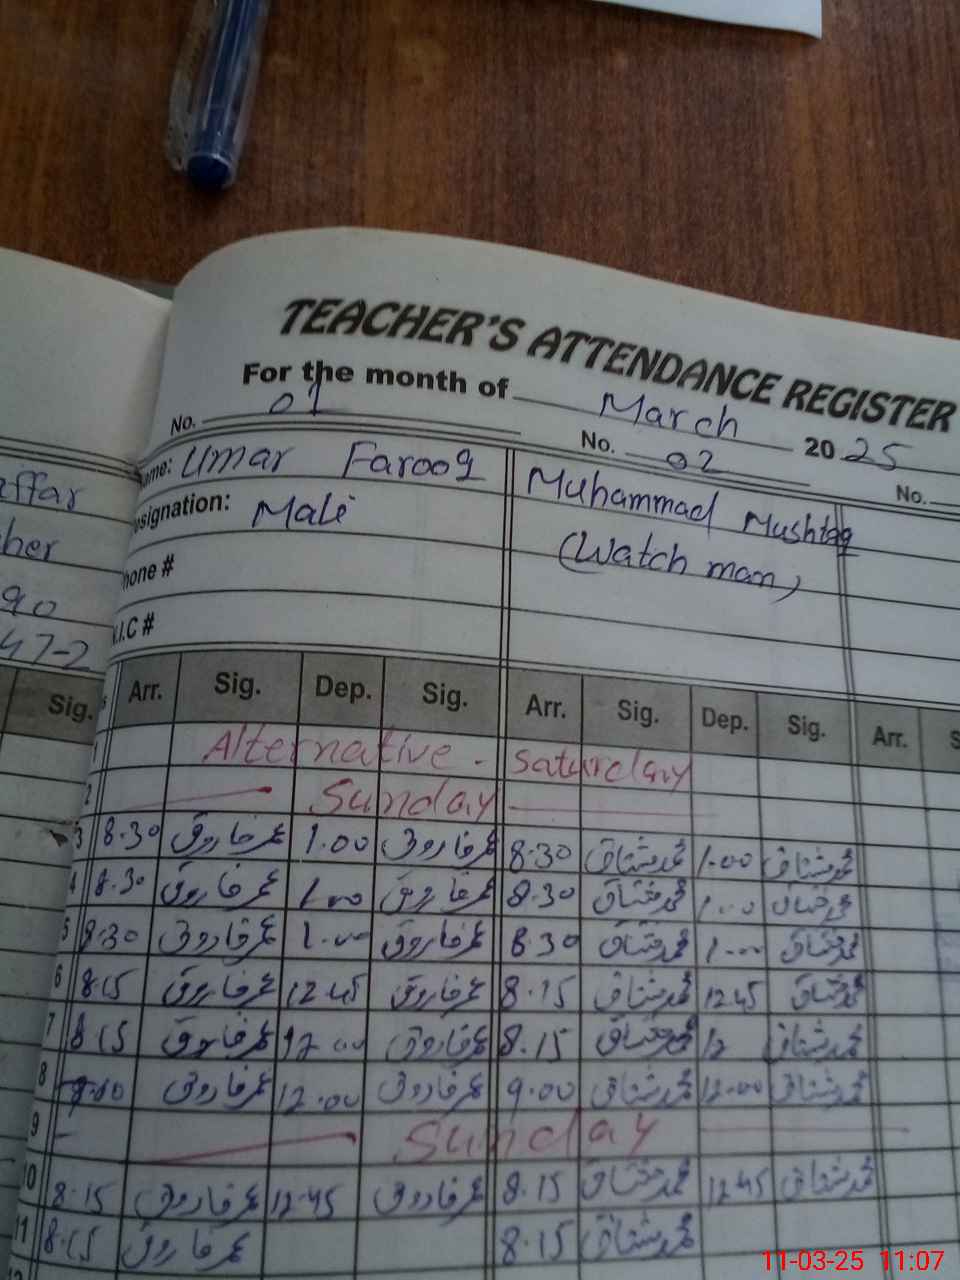 TEACHER'S ATTENDANCE REGISTER
For the month of March 2025
No. 01 No. 02 No.
ame: Umar Farooq Muhammad Mushtaq
esignation: Mali (Watch man)
hone #
.I.C #
effar
her
90
47-2
Sig. Arr. Sig. Dep. Sig. Arr. Sig. Dep. Sig. Arr. S
1 Alternative - Saturday
2 Sunday
3 8.30 عمر فاروق 1.00 عمر فاروق 8.30 محمد مشتاق 1.00 محمد مشتاق
4 8.30 عمر فاروق 1.00 عمر فاروق 8.30 محمد مشتاق 1.00 محمد مشتاق
5 8.30 عمر فاروق 1.00 عمر فاروق 8.30 محمد مشتاق 1.00 محمد مشتاق
6 8.15 عمر فاروق 12.45 عمر فاروق 8.15 محمد مشتاق 12.45 محمد مشتاق
7 8.15 عمر فاروق 12.00 عمر فاروق 8.15 محمد مشتاق 12 محمد مشتاق
8 9.00 عمر فاروق 12.00 عمر فاروق 9.00 محمد مشتاق 12.00 محمد مشتاق
9 Sunday
10 8.15 عمر فاروق 12.45 عمر فاروق 8.15 محمد مشتاق 12.45 محمد مشتاق
11 8.15 عمر فاروق 8.15 محمد مشتاق
11-03-25 11:07